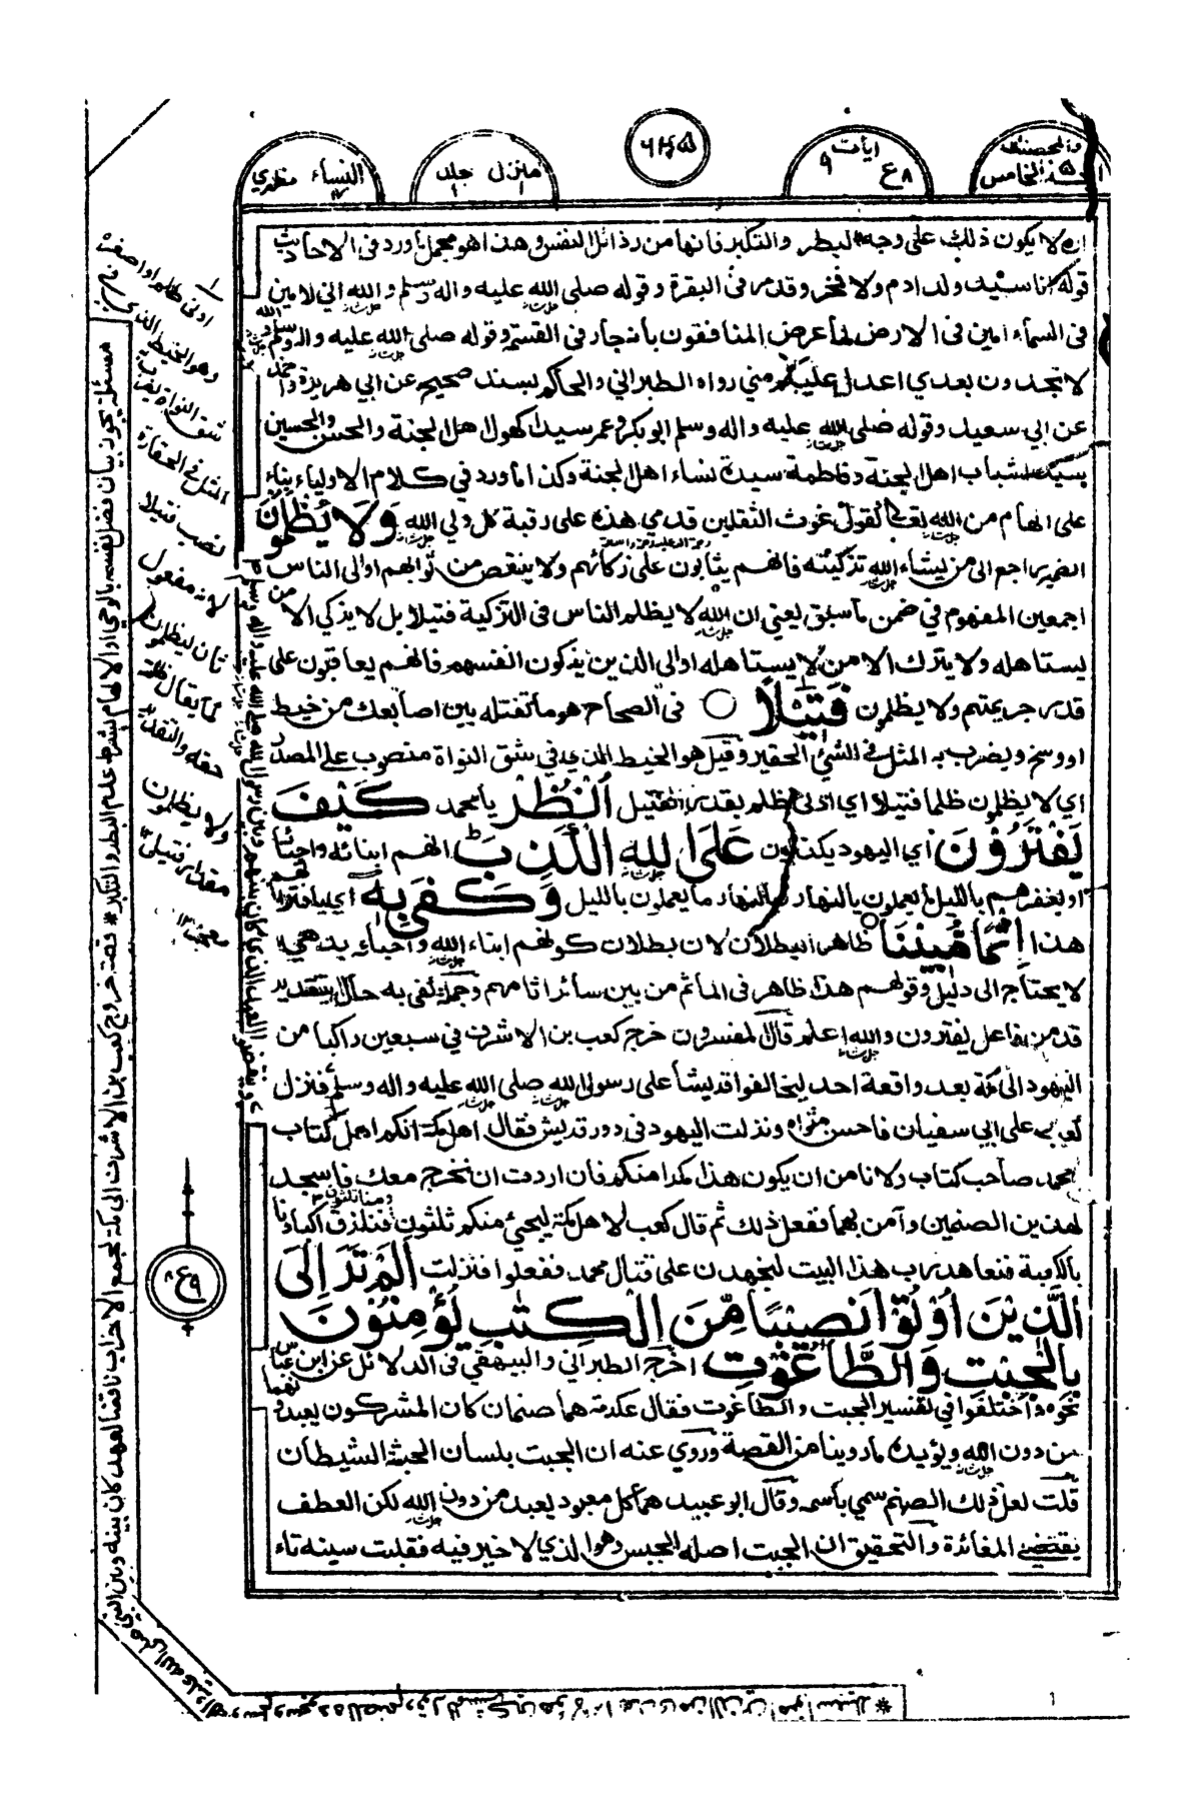 والمحصنت
الخامس
ايات ٩
٨ ع
منزل ١ جلد ١
النساء مظهري
انه لا يكون ذلك على وجه البطر والتكبر فانها من رذائل النفس وهذا هو محمل ما ورد في الاحاديث
قوله انا سيد ولد ادم ولا فخر وقد مر في البقرة وقوله صلى الله عليه واله وسلم والله اني لامين
في السماء امين في الارض لما عرض المنافقون بانه جار في القسمة وقوله صلى الله عليه واله وسلم والله
لا تجدون بعدي اعدل عليكم مني رواه الطبراني والحاكم بسند صحيح عن ابي هريرة واحمد
عن ابي سعيد وقوله صلى الله عليه واله وسلم ابو بكر وعمر سيدا كهول اهل الجنة والحسن والحسين
سيدا شباب اهل الجنة وفاطمة سيدة نساء اهل الجنة وكذا ما ورد في كلام الاولياء بناء
على الهام من الله تعالى كقول غوث الثقلين قدمي هذه على رقبة كل ولي الله وَلَا يُظْلَمُوْنَ
الضمير راجع الى من يشاء الله تزكيته فانهم يثابون على زكائهم ولا ينقص من ثوابهم او الى الناس
اجمعين المفهوم في ضمن ما سبق يعني ان الله لا يظلم الناس في التزكية فتيلا بل لا يزكي الا من
يستاهله ولا يترك الا من لا يستاهله او الى الذين يزكون انفسهم فانهم يعاقبون على
قدر جريمتهم ولا يظلمون فَتِيْلًا ○ في الصحاح هو ما تفتله بين اصابعك من خيط
او وسخ ويضرب به المثل في الشيء الحقير وقيل هو الخيط الذي في شق النواة منصوب على المصدر
اي لا يظلمون ظلما فتيلا اي ادنى ظلم بقدر الفتيل اُنْظُرْ يا محمد كَيْفَ
يَفْتَرُوْنَ اي اليهود يكذبون عَلَى اللهِ الْكَذِبَ انهم ابنائه واحبائه
او يغفر لهم بالليل ما يعملون بالنهار وبالنهار ما يعملون بالليل وَكَفٰى بِهٖ اي بافترائهم
هذا اِثْمًا مُّبِيْنًا ○ ظاهرا بطلان لان بطلان كونهم ابناء الله واحباءه بديهي
لا يحتاج الى دليل وقولهم هذا ظاهر في المأثم من بين سائر اثامهم وجملة كفى به حال بتقدير
قد من فاعل يفترون والله اعلم قال المفسرون خرج كعب بن الاشرف في سبعين راكبا من
اليهود الى مكة بعد واقعة احد ليحالفوا قريشا على رسول الله صلى الله عليه واله وسلم فنزل
كعب على ابي سفيان فاحسن مثواه ونزلت اليهود في دور قريش فقال اهل مكة انكم اهل كتاب
ومحمد صاحب كتاب ولا نامن ان يكون هذا مكرا منكم فان اردت ان نخرج معك فاسجد
لهذين الصنمين وآمن بهما ففعل ذلك ثم قال كعب لاهل مكة ليجيء منكم ثلثون ومنا ثلثون فنلزق اكبادنا
بالكعبة فنعاهد رب هذا البيت لنجهدن على قتال محمد ففعلوا فنزلت اَلَمْ تَرَ اِلَى
الَّذِيْنَ اُوْتُوْا نَصِيْبًا مِّنَ الْكِتٰبِ يُؤْمِنُوْنَ
بِالْجِبْتِ وَالطَّاغُوْتِ اخرج الطبراني والبيهقي في الدلائل عن ابن عباس
نحوه واختلفوا في تفسير الجبت والطاغوت فقال عكرمة هما صنمان كان المشركون يعبدونهما
من دون الله ويؤيده ما روينا من القصة وروي عنه ان الجبت بلسان الحبشة الشيطان
قلت لعل ذلك الصنم سمي باسمه وقال ابو عبيد هما كل معبود يعبد من دون الله لكن العطف
يقتضي المغائرة والتحقيق ان الجبت اصله الجبس وهو الذي لا خير فيه فقلبت سينه تاء
١
ادنى ظلم او اصغره
وهو الخيط الذي في
شق النواة يضرب به
المثل في الحقارة
نصب فتيلا
لانه مفعول
ثان ليظلمون
كما يقال ظلمته
حقه والتقدير
ولا يظلمون
مقدار فتيل
مسئلة يجوز بيان فضل نفسه بالوحي او الالهام بشرط عدم البطر والتكبر * قصة خروج كعب بن الاشرف الى مكة لجمع الاحزاب ناقضا لعهد كان بينه وبين النبي صلى الله عليه
ع ٩